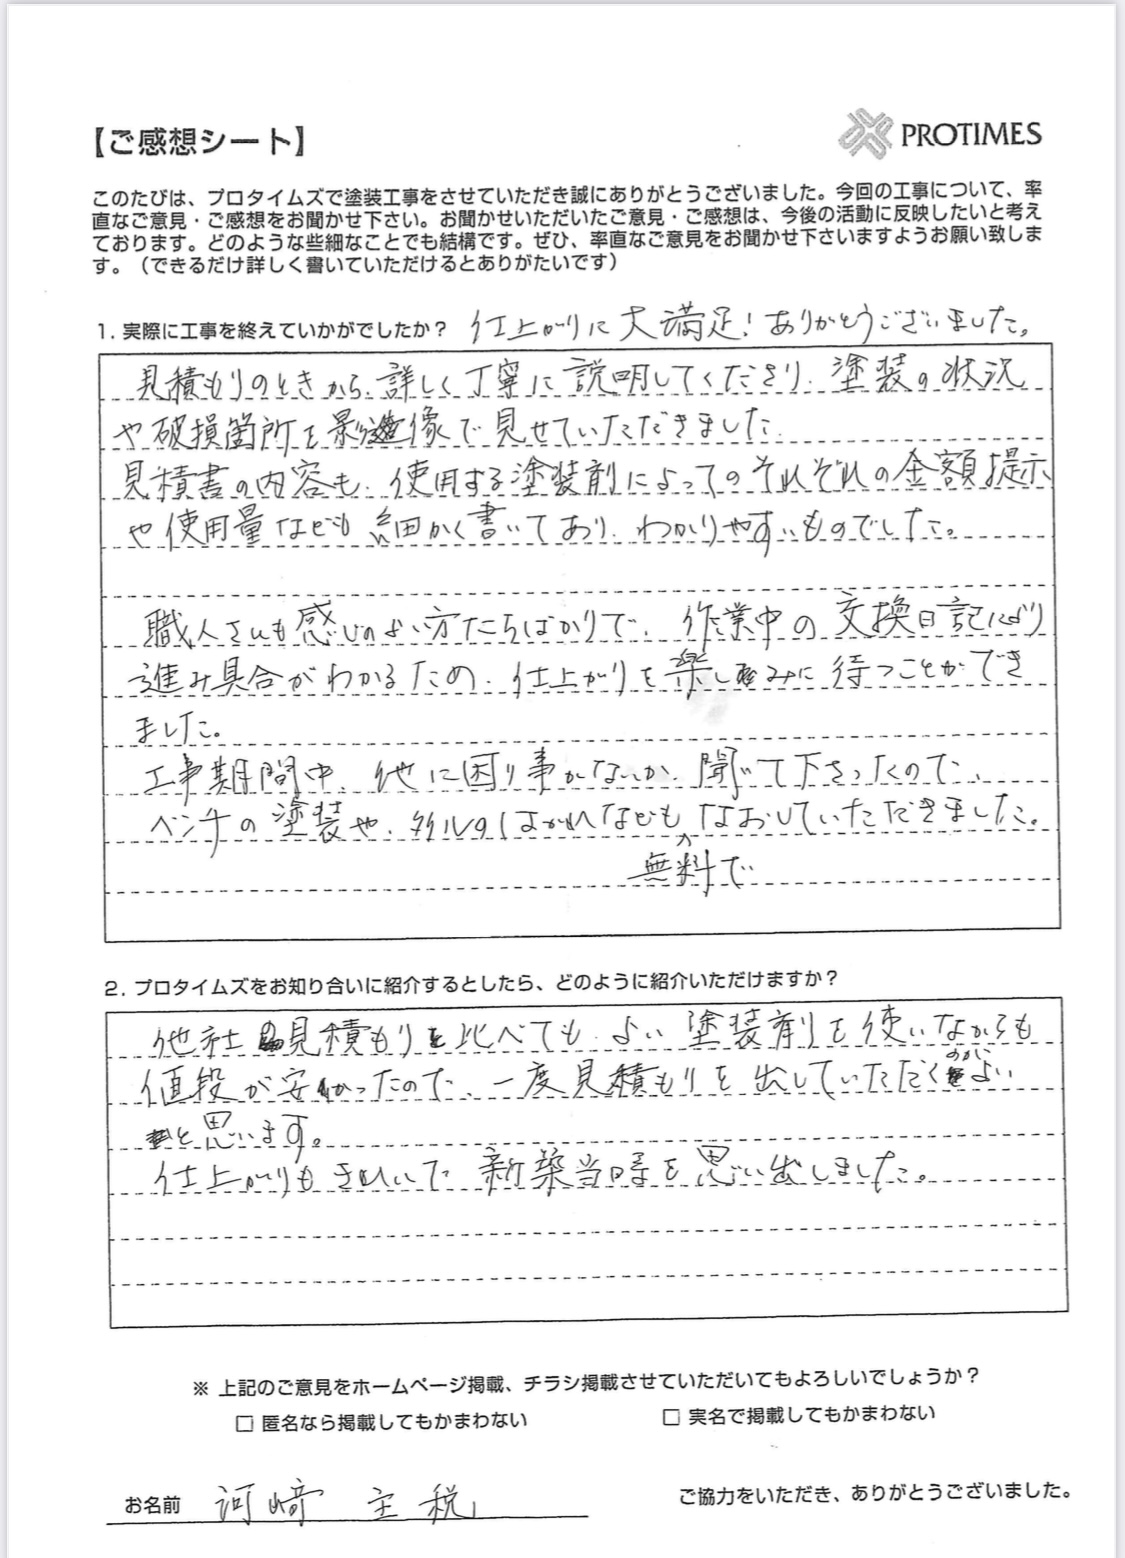 【ご感想シート】
PROTIMES
このたびは、プロタイムズで塗装工事をさせていただき誠にありがとうございました。今回の工事について、率
直なご意見・ご感想をお聞かせ下さい。お聞かせいただいたご意見・ご感想は、今後の活動に反映したいと考え
ております。どのような些細なことでも結構です。ぜひ、率直なご意見をお聞かせ下さいますようお願い致しま
す。（できるだけ詳しく書いていただけるとありがたいです）
1. 実際に工事を終えていかがでしたか？ 仕上がりに大満足！ありがとうございました。
見積もりのときから、詳しく丁寧に説明してくださり、塗装の状況
や破損箇所を影像で見せていただきました。
見積書の内容も、使用する塗装剤によってのそれぞれの金額提示
や使用量なども細かく書いており、わかりやすいものでした。
職人さんも感じのよい方たちばかりで、作業中の交換日記により
進み具合がわかるため、仕上がりを楽しみに待つことができ
ました。
工事期間中、他に困り事がないか、聞いて下さったので、
ベンチの塗装や、タイルのはがれなどもなおしていただきました。
無料で
2. プロタイムズをお知り合いに紹介するとしたら、どのように紹介いただけますか？
他社見積もりと比べても、よい塗装剤を使いながらも
値段が安かったので、一度見積もりを出していただくのがよい
と思います。
仕上がりもきれいで新築当時を思い出しました。
※ 上記のご意見をホームページ掲載、チラシ掲載させていただいてもよろしいでしょうか？
□ 匿名なら掲載してもかまわない
□ 実名で掲載してもかまわない
お名前 河﨑 主税
ご協力をいただき、ありがとうございました。